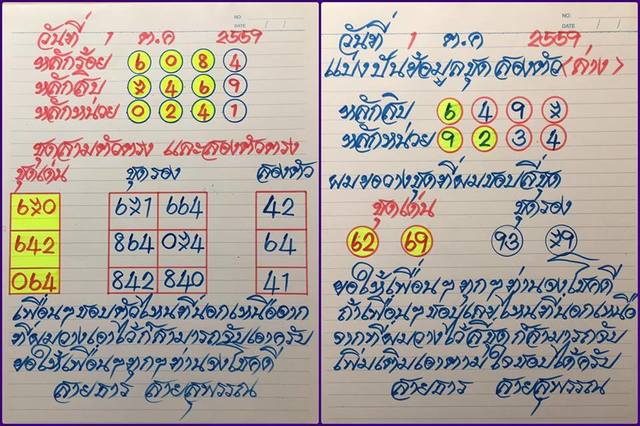 NO.
DATE / /
วันที่ 1 ต.ค 2559
หลักร้อย 6 0 8 4
หลักสิบ 7 4 6 9
หลักหน่วย 0 2 4 1
ชุดสามตัวตรง และสองตัวตรง
ชุดเด่น ชุดรอง สองตัว
670 671 664 42
642 864 074 64
064 842 840 41
เพื่อนๆชอบตัวไหนที่นอกเหนือจาก
ที่ผมวางเอาไว้ก็สามารถจับเอาครับ
ขอให้เพื่อนๆทุกๆท่านจงโชคดี
สายธาร สายสุพรรณ
NO.
DATE / /
วันที่ 1 ต.ค 2559
แบ่งปันข้อมูลชุดสองตัว<ล่าง>
หลักสิบ 6 4 9 7
หลักหน่วย 9 2 3 4
ผมขอวางชุดที่ผมชอบสี่ชุด
ชุดเด่น ชุดรอง
62 69 93 79
ขอให้เพื่อนๆทุกๆท่านจงโชคดี
ถ้าเพื่อนๆชอบชุดไหนที่นอกเหนือ
จากที่ผมวางไว้สี่ชุดก็สามารถจับ
เพิ่มเติมเอาตามใจชอบได้ครับ
สายธาร สายสุพรรณ